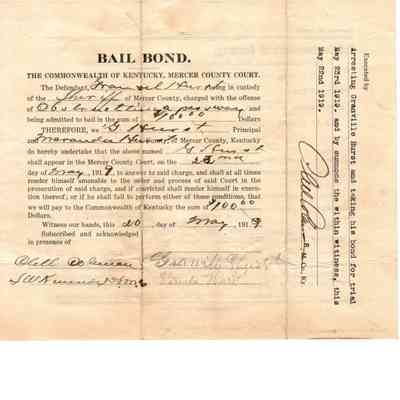 BAIL BOND.
THE COMMONWEALTH OF KENTUCKY, MERCER COUNTY COURT.
The Defendant, Granvil Hurst being in custody
of the Sheriff of Mercer County, charged with the offense
of Obstructing a passway and
being admitted to bail in the sum of $100.00 Dollars
THEREFORE, we G Hurst Principal
and Hurst Mercer County, Kentucky
do hereby undertake that the above named G Hurst
shall appear in the Mercer County Court, on the
day of May 1919, to answer to said charge, and shall at all times
render himself amenable to the order and process of said Court in the
prosecution of said charge, and if convicted shall render himself in execu-
tion thereof; or if he shall fail to perform either of these conditions, that
we will pay to the Commonwealth of Kentucky the sum of $100.00
Dollars.
Witness our hands, this 20 day of May 1919
Subscribed and acknowledged
in presence of
Coleman
Executed by
Arresting Granville Hurst and taking his bond for trial
May 23rd 1919. and by summons the within witness, this
May 22nd 1919.